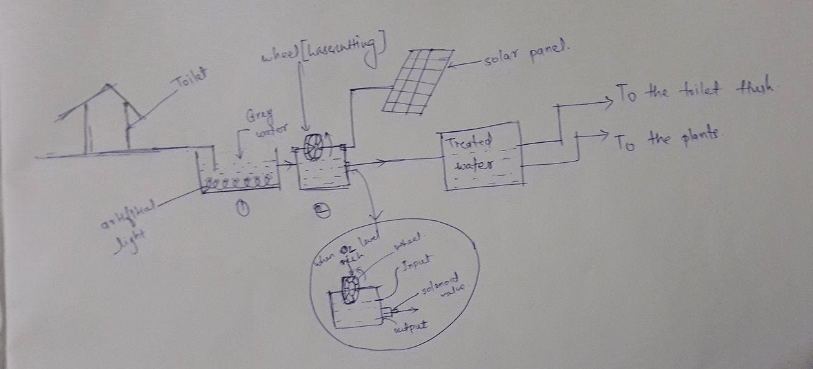 wheel[Lasercutting]
solar panel.
Toilet
Grey
water
To the toilet flush
To the plants.
Treated
water
artificial
light
1
2
when O2 level
wheel
Input
solenoid
valve
output